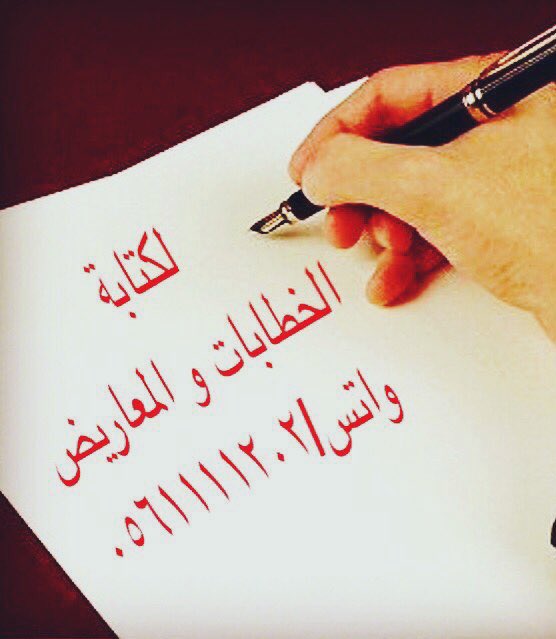 لكتابة
الخطابات و المعاريض
واتس/٠٥٦١١١١٢٠٢